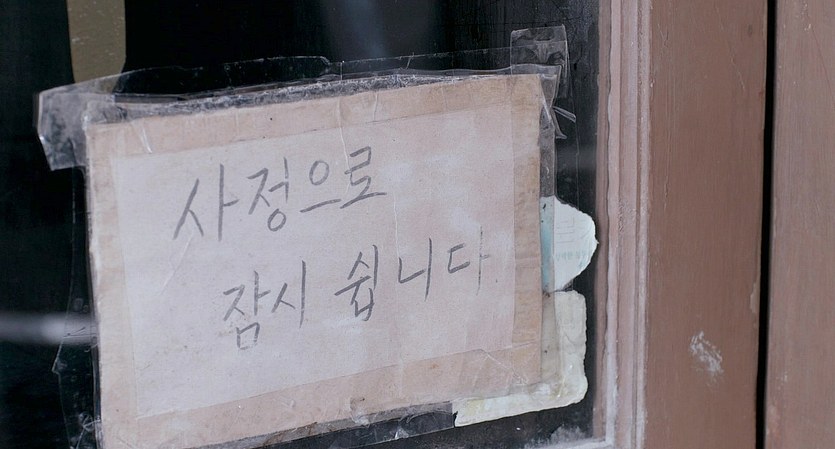 사정으로
잠시 쉽니다